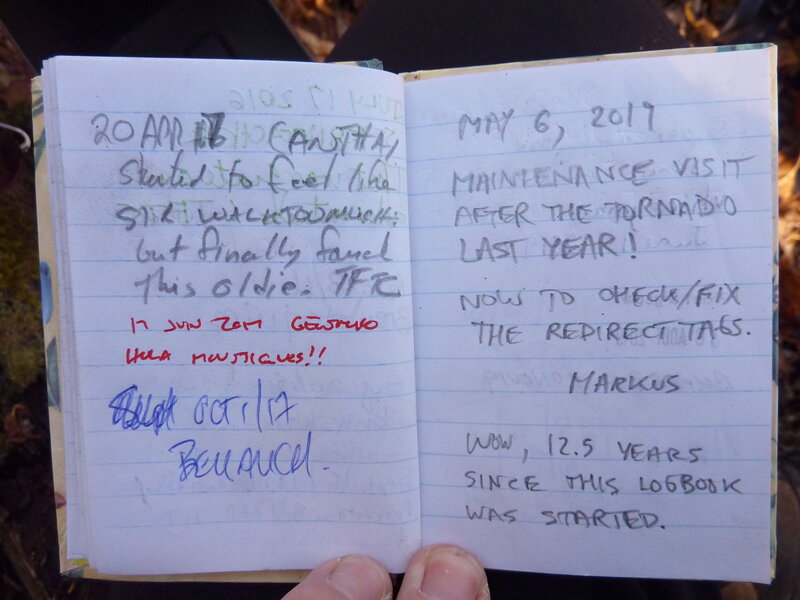 20 APR 17 CANTHA,
started to feel like
SIR WALKTOOMUCH.
but finally found
This oldie. TFTC
17 JUN 2017
HOLA MUSTIQUES!!
OCT 1/17
MAY 6, 2017
MAINTENANCE VISIT
AFTER THE TORNADO
LAST YEAR!
NOW TO CHECK/FIX
THE REDIRECT TAGS.
MARKUS
WOW, 12.5 YEARS
SINCE THIS LOGBOOK
WAS STARTED.
JULY 17 2016